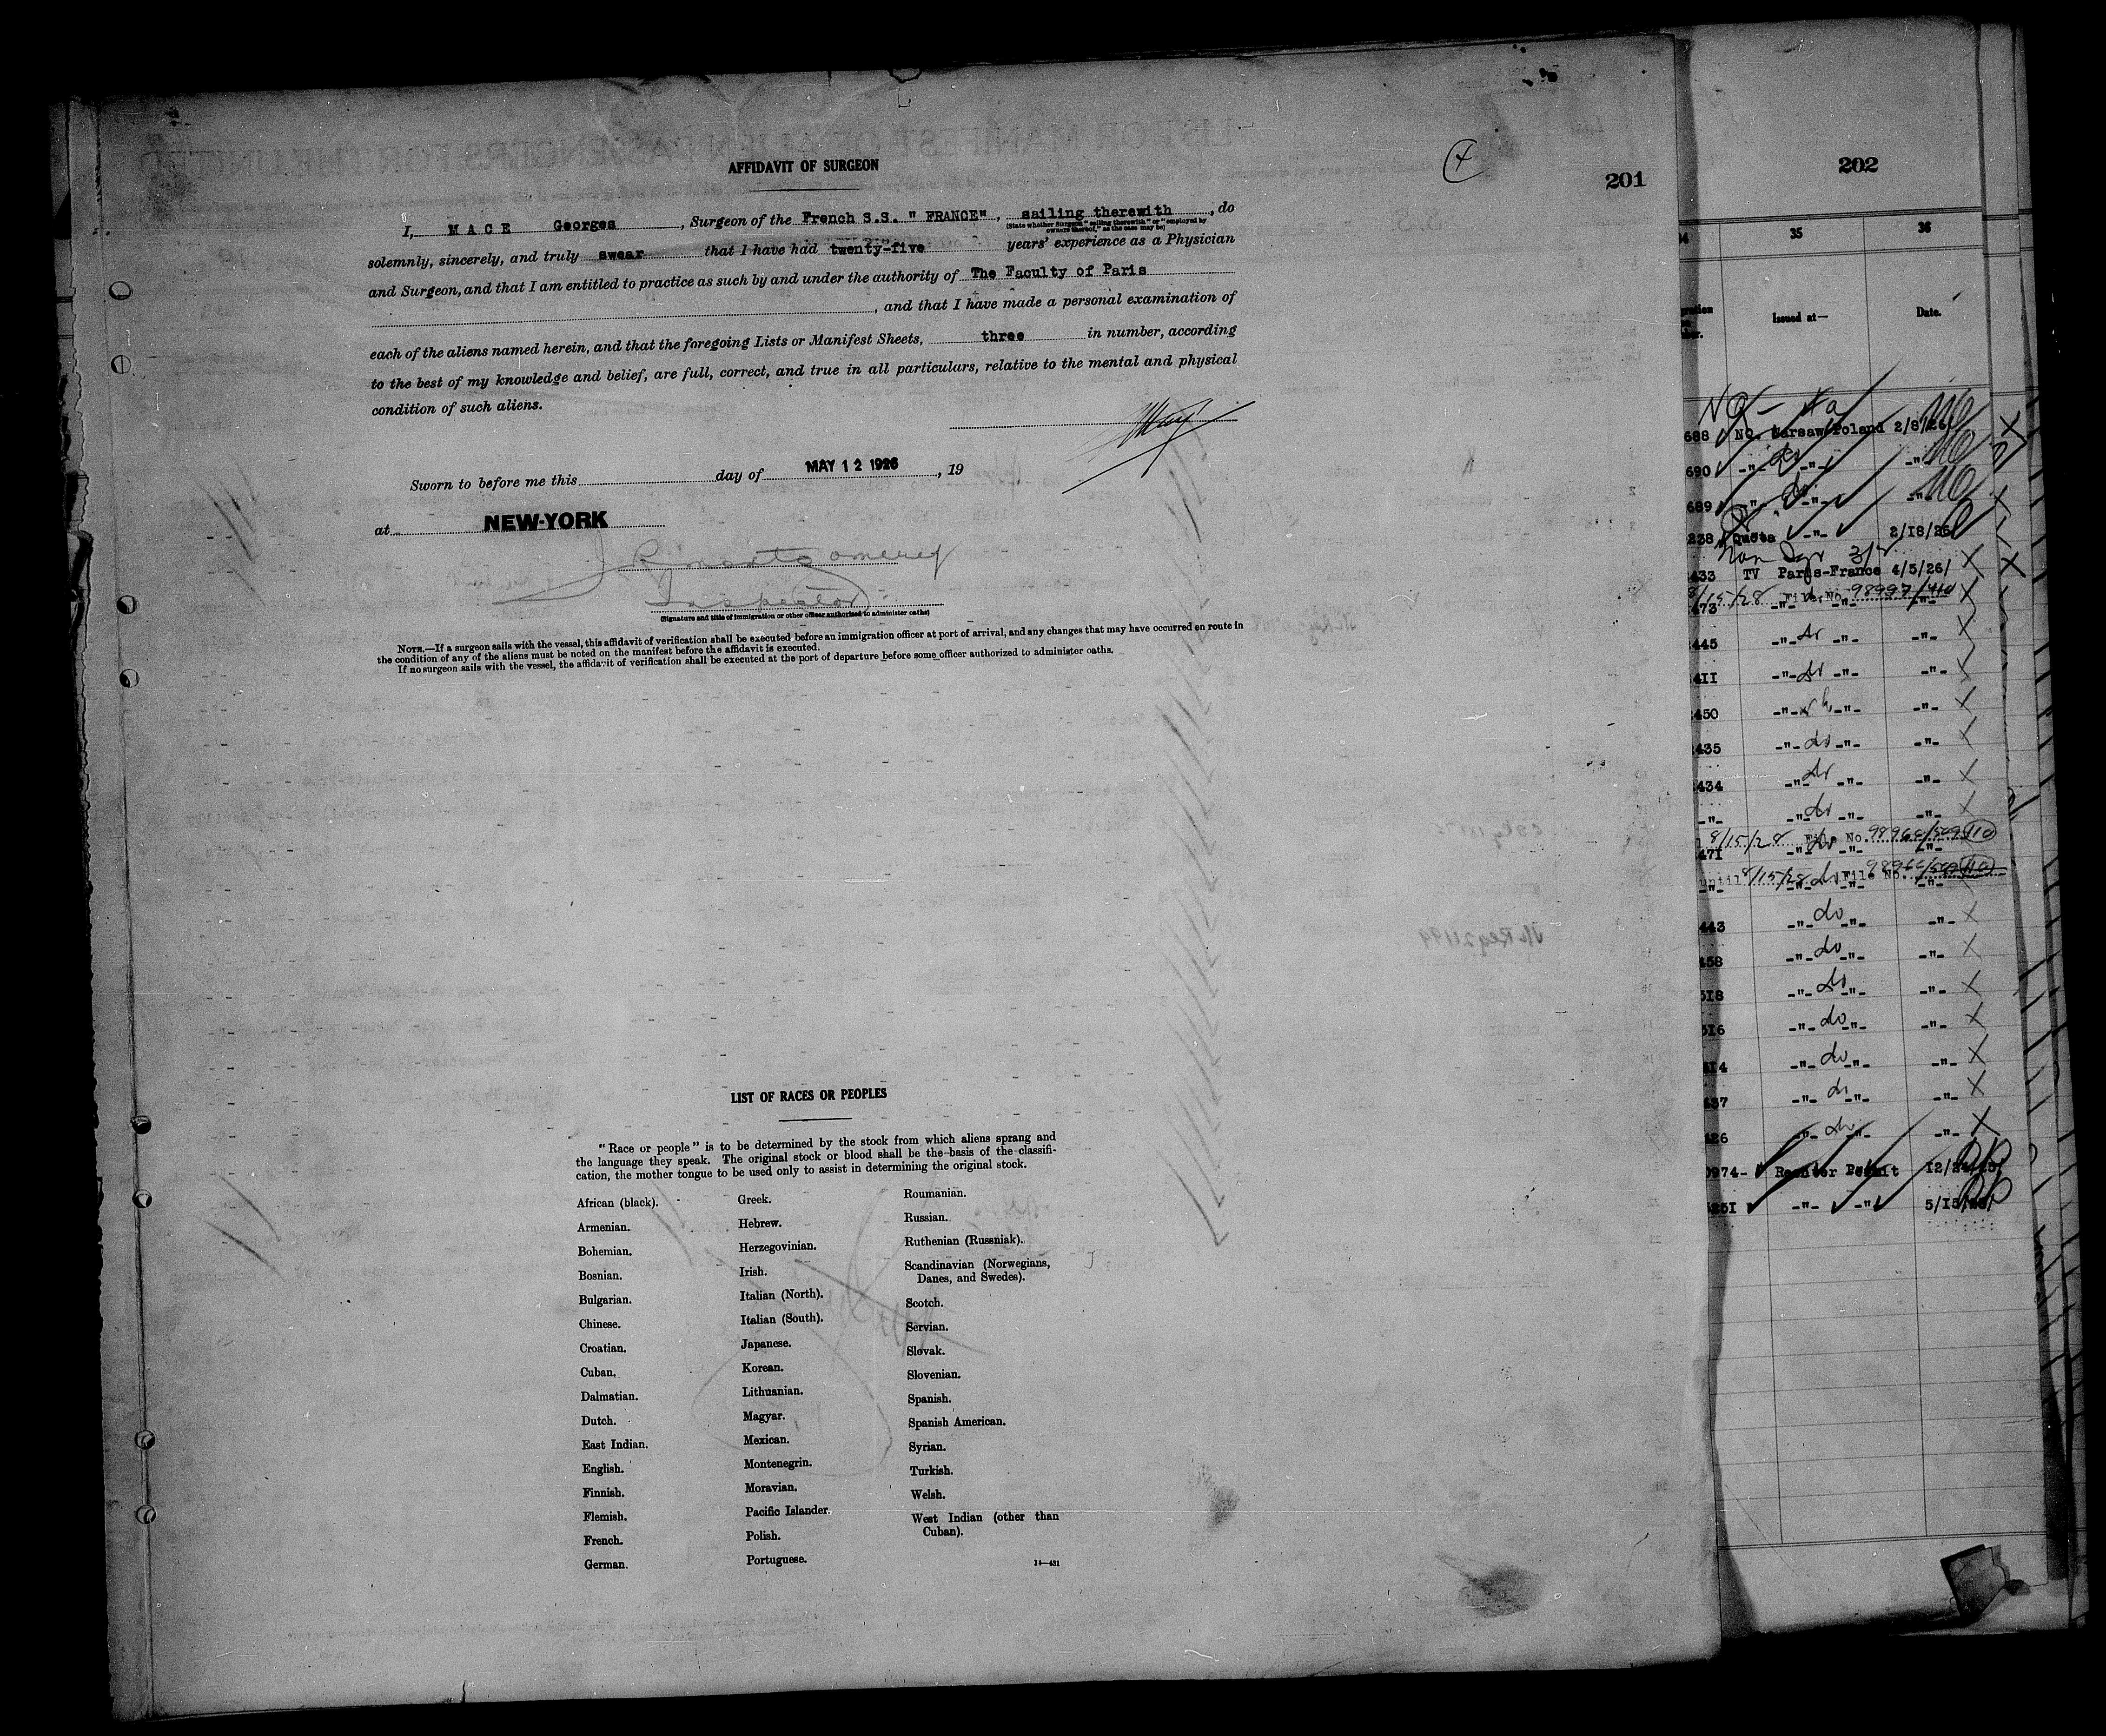 AFFIDAVIT OF SURGEON
201
I, MACE Georges, Surgeon of the French S.S. " FRANCE", sailing therewith, do
(State whether Surgeon "sailing therewith" or "employed by
owners thereof," as the case may be)
solemnly, sincerely, and truly swear that I have had twenty-five years' experience as a Physician
and Surgeon, and that I am entitled to practice as such by and under the authority of The Faculty of Paris
, and that I have made a personal examination of
each of the aliens named herein, and that the foregoing Lists or Manifest Sheets, three in number, according
to the best of my knowledge and belief, are full, correct, and true in all particulars, relative to the mental and physical
condition of such aliens.
Sworn to before me this day of MAY 12 1926, 19
at NEW-YORK
Inspector
(Signature and title of immigration or other officer authorized to administer oaths)
NOTE.—If a surgeon sails with the vessel, this affidavit of verification shall be executed before an immigration officer at port of arrival, and any changes that may have occurred en route in
the condition of any of the aliens must be noted on the manifest before the affidavit is executed.
If no surgeon sails with the vessel, the affidavit of verification shall be executed at the port of departure before some officer authorized to administer oaths.
LIST OF RACES OR PEOPLES
"Race or people" is to be determined by the stock from which aliens sprang and
the language they speak. The original stock or blood shall be the basis of the classifi-
cation, the mother tongue to be used only to assist in determining the original stock.
African (black).
Armenian.
Bohemian.
Bosnian.
Bulgarian.
Chinese.
Croatian.
Cuban.
Dalmatian.
Dutch.
East Indian.
English.
Finnish.
Flemish.
French.
German.
Greek.
Hebrew.
Herzegovinian.
Irish.
Italian (North).
Italian (South).
Japanese.
Korean.
Lithuanian.
Magyar.
Mexican.
Montenegrin.
Moravian.
Pacific Islander.
Polish.
Portuguese.
Roumanian.
Russian.
Ruthenian (Russniak).
Scandinavian (Norwegians,
Danes, and Swedes).
Scotch.
Servian.
Slovak.
Slovenian.
Spanish.
Spanish American.
Syrian.
Turkish.
Welsh.
West Indian (other than
Cuban).
14—431
202
35 36
Issued at— Date.
688 NQ. Warsaw-Poland 2/8/26
690 -"- -"- -"-
689 -"- -"- -"-
238 Quota -"- 2/18/26
433 TV Paris-France 4/5/26/
8/15/28 File No.
473 -"- -"- -"-
445 -"- do -"- -"-
411 -"- do -"- -"-
450 -"- -"- -"-
435 -"- do -"- -"-
434 -"- do -"- -"-
-"- -"- do -"- -"-
8/15/28 File No.
471 -"- -"- -"-
until 8/15/28 File No.
-"- -"- do -"- -"-
443 -"- do -"- -"-
458 -"- do -"- -"-
518 -"- do -"- -"-
516 -"- do -"- -"-
414 -"- do -"- -"-
437 -"- do -"- -"-
426 -"- do -"- -"-
0974- Reenter Permit
5251 -"- -"-